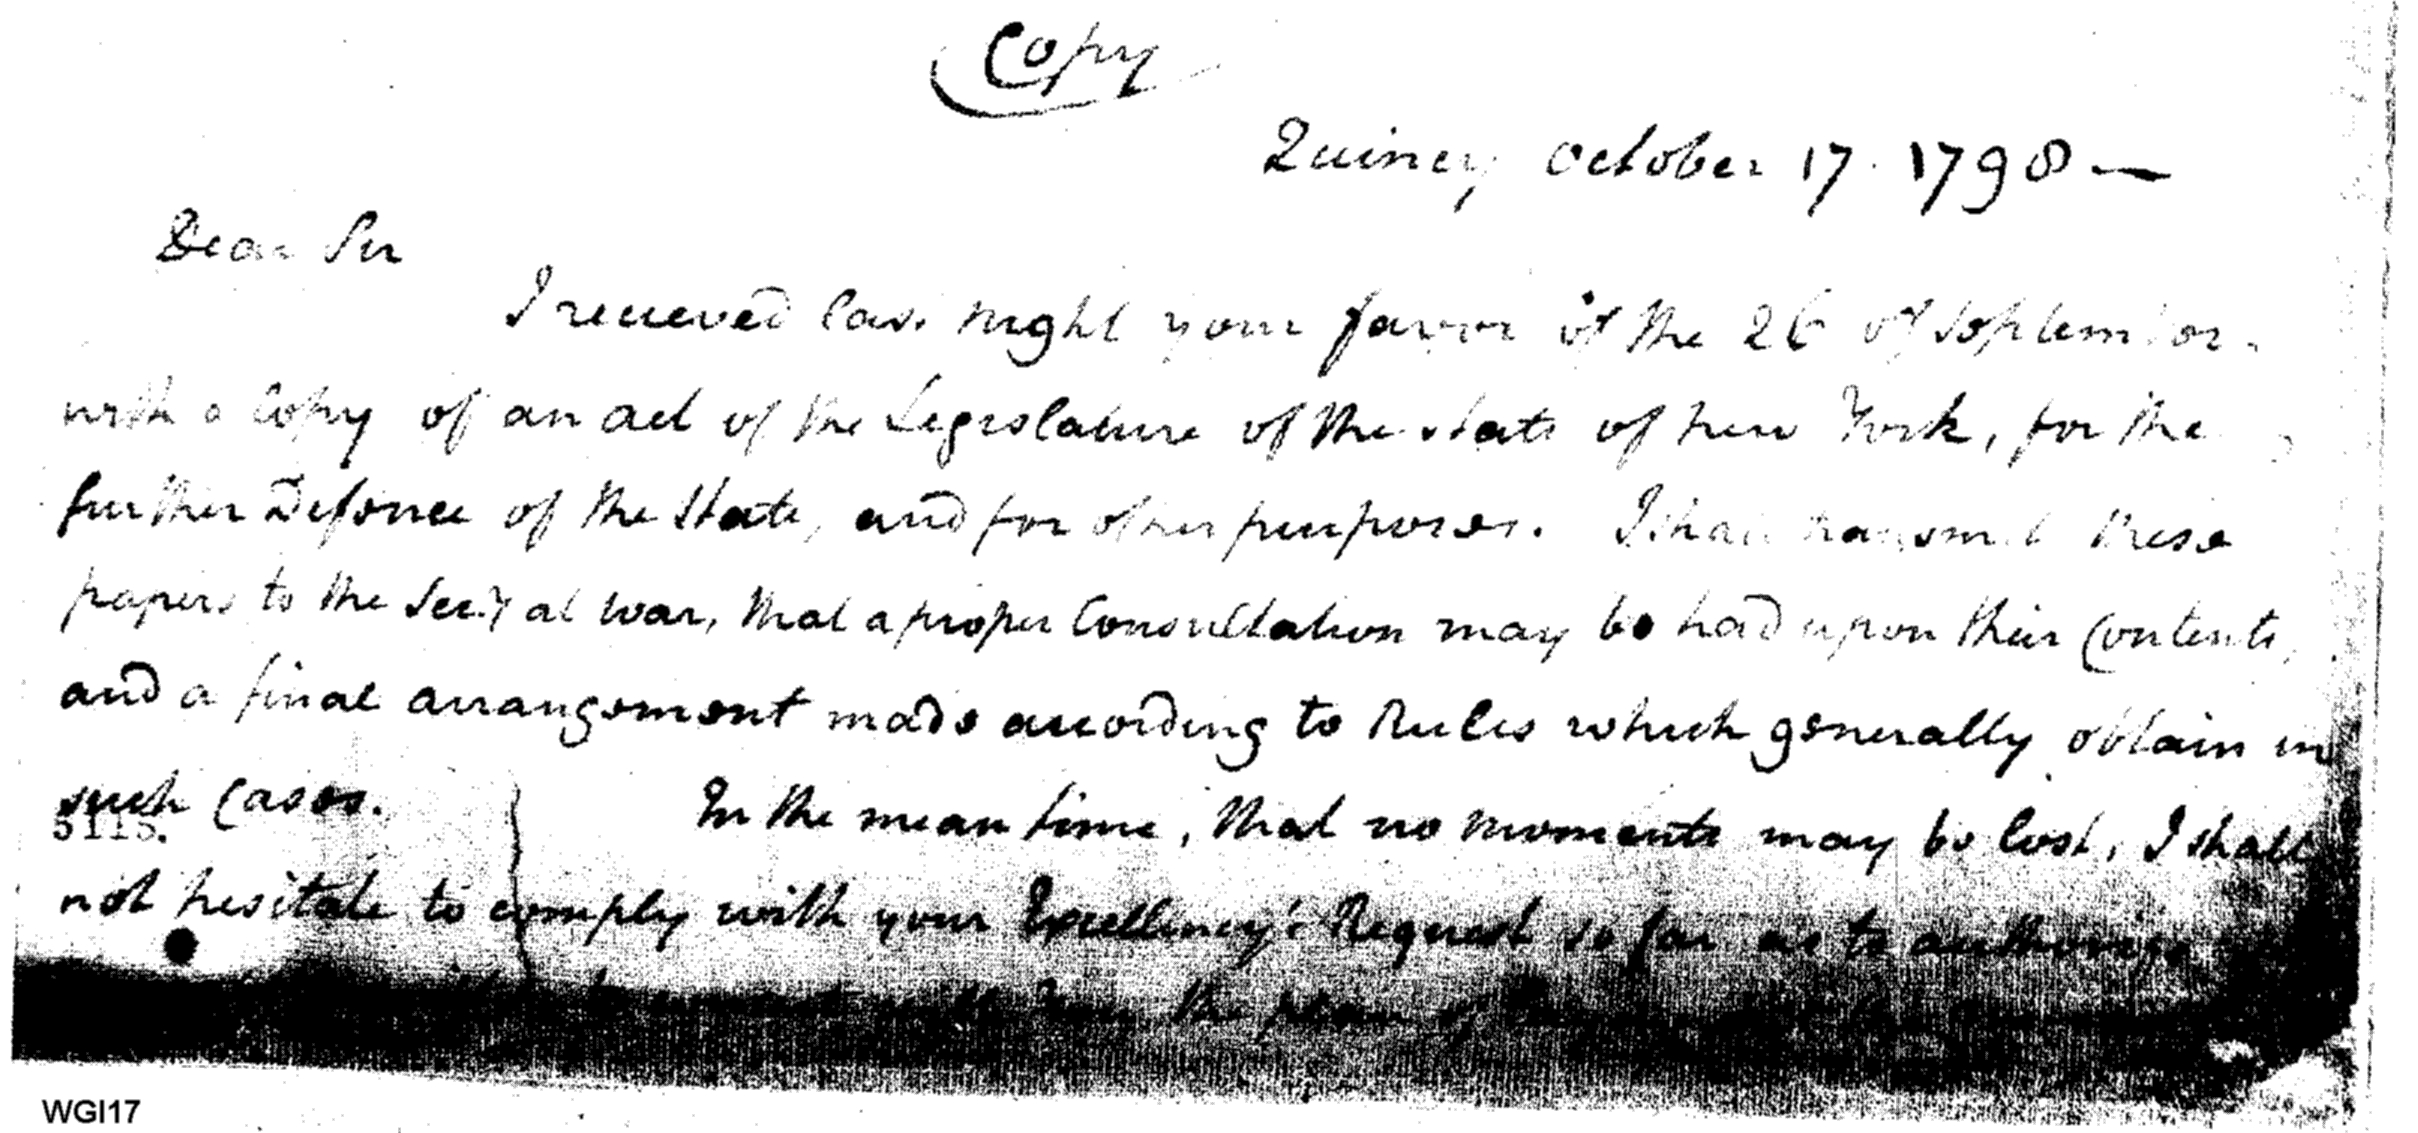 Copy
Quincy October 17. 1798 —
Dear Sir
I recieved last night your favor of the 26 of September
with a Copy of an act of the Legislature of the State of New York, for the
further Defence of the State, and for other purposes. I shall transmit these
papers to the Secry at War, that a proper Consultation may be had upon their Contents,
and a final arrangement made according to Rules which generally obtain in
such Cases. In the mean time, that no moments may be lost, I shall
5115.
not hesitate to comply with your Excellency's Request so far as to authorize
with you the plan of
WGI17